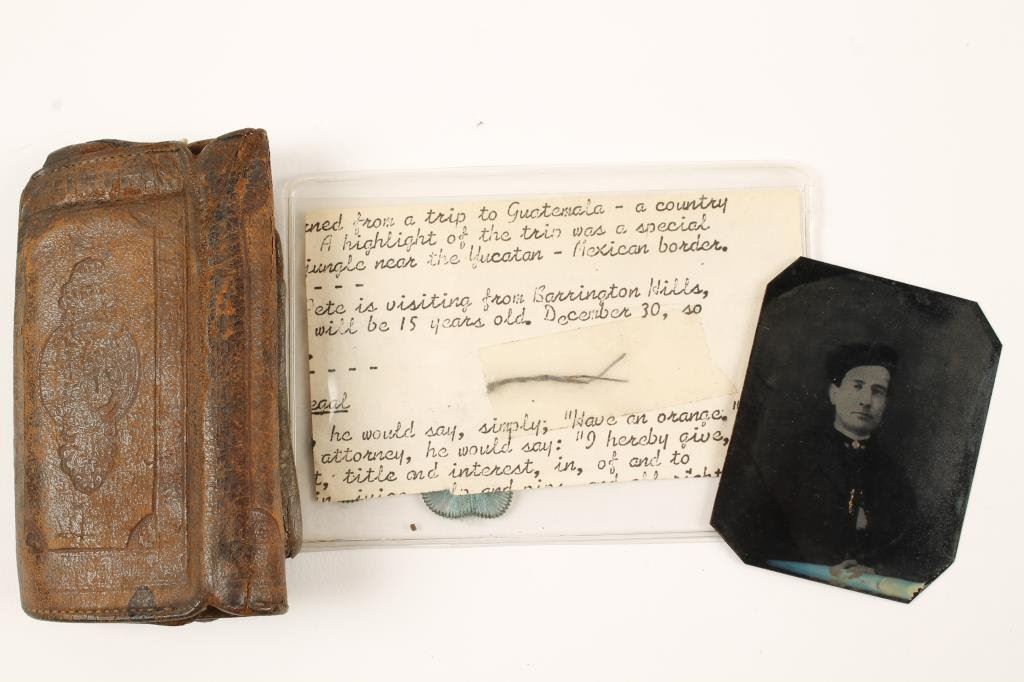 rned from a trip to Guatemala - a country
A highlight of the trip was a special
jungle near the Yucatan - Mexican border.
- - - -
Pete is visiting from Barrington Hills,
will be 15 years old. December 30, so
- - - -
egal
he would say, simply; "Have an orange."
attorney, he would say: "I hereby give,
t, title and interest, in, of and to
and pips, and all right